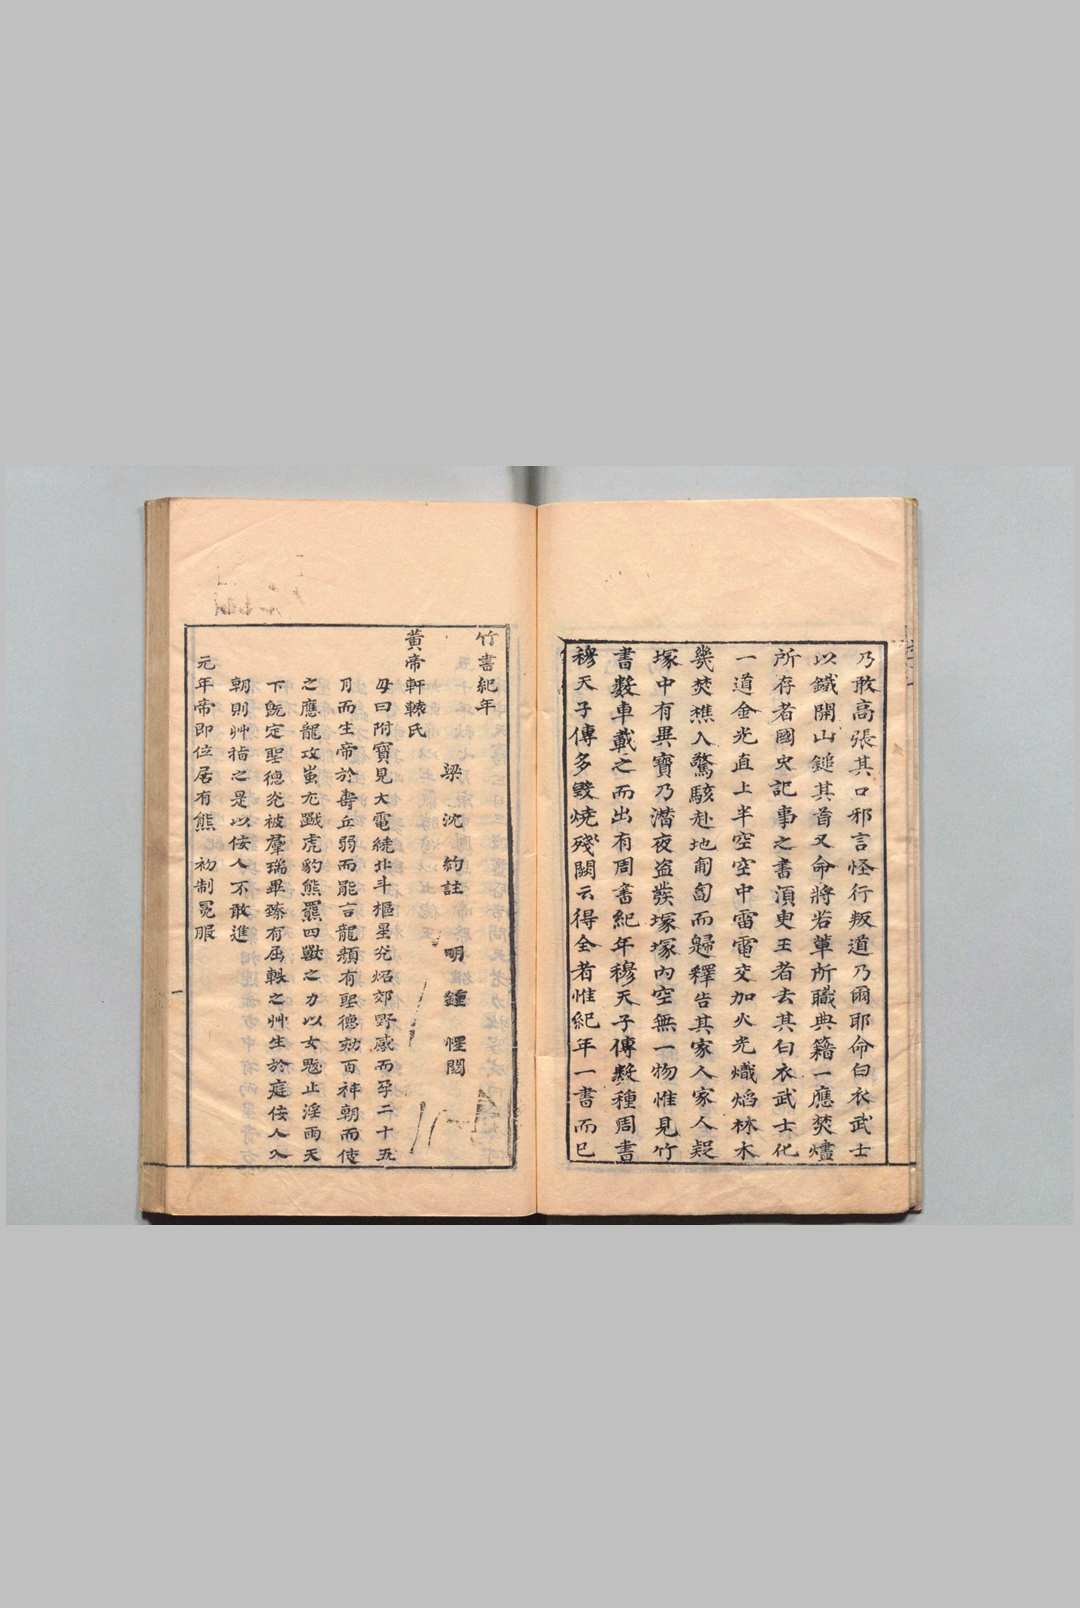 乃敢高張其口邪言怪行叛道乃爾耶命白衣武士
以鐵開山鎚其首又命將若輩所職典籍一應焚燼
所存者國史記事之書湏臾王者去其白衣武士化
一道金光直上半空空中雷電交加火光熾焰林木
幾焚樵人驚駭赴地匍匐而歸釋告其家人家人疑
塚中有異寶乃潛夜盜發塚塚內空無一物惟見竹
書數車載之而出有周書紀年穆天子傳數種周書
穆天子傳多毀燒殘闕云得全者惟紀年一書而已
竹書紀年
梁 沈 約註 明鍾 惺閱
黃帝軒轅氏
母曰附寶見大電繞北斗樞星光炤郊野感而孕二十五
月而生帝於壽丘弱而能言龍顏有聖德劾百神朝而使
之應龍攻蚩尤戰虎豹熊羆四獸之力以女魃止淫雨天
下旣定聖德光被羣瑞畢臻有屈軼之艸生於庭佞人入
朝則艸指之是以佞人不敢進
元年帝即位居有熊 初制冕服
一